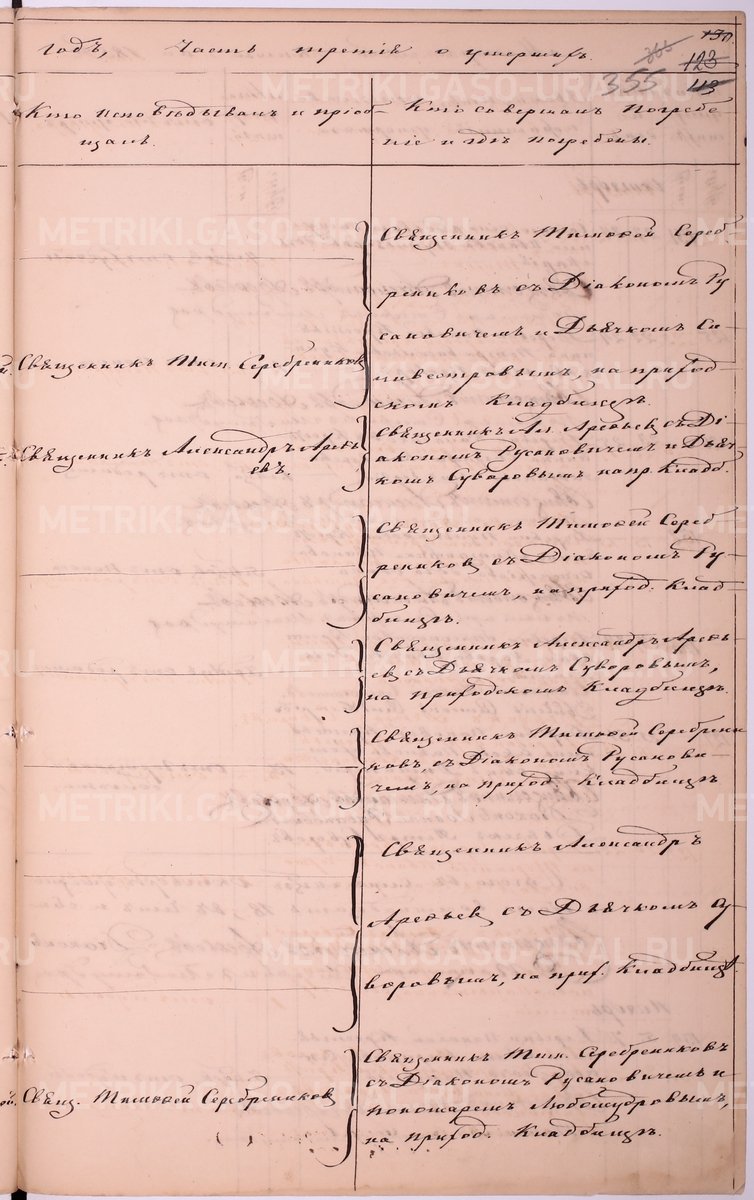 годъ, Часть третія о умершихъ.
130.
366
123
355
113
Кто исповѣдывалъ и пріоб-
щалъ.
Кто совершалъ погребе-
ніе и гдѣ погребены.
Священникъ Тимоѳей Сереб-
рениковъ съ Діакономъ Ру
сановичемъ и Дьячкомъ Си
Священникъ Тим. Серебрениковъ
ливестровымъ, на приход-
скомъ Кладбищѣ.
Священникъ Александръ Ареѳь
евъ.
Священникъ Ал. Ареѳьевъ съ Ді-
акономъ Русановичемъ и Дьяч
комъ Суворовымъ на пр. Кладб.
Священникъ Тимоѳей Сереб
рениковъ съ Діакономъ Ру-
сановичемъ, на приход. Клад-
бищѣ.
Священникъ Александръ Ареѳь
евъ съ Дьячкомъ Суворовымъ,
на Приходскомъ Кладбищѣ.
Священникъ Тимоѳей Серебрени
ковъ, съ Діакономъ Русанови-
чемъ, на приход. Кладбищѣ
Священникъ Александръ
Ареѳьевъ съ Дьячкомъ Су-
воровымъ, на прих. Кладбищѣ.
Священникъ Тим. Серебрениковъ
съ Діакономъ Русановичемъ и
Свящ. Тимоѳей Серебрениковъ
пономаремъ Любомудровымъ,
на приход. Кладбищѣ.
METRIKI.GASO-URAL.RU